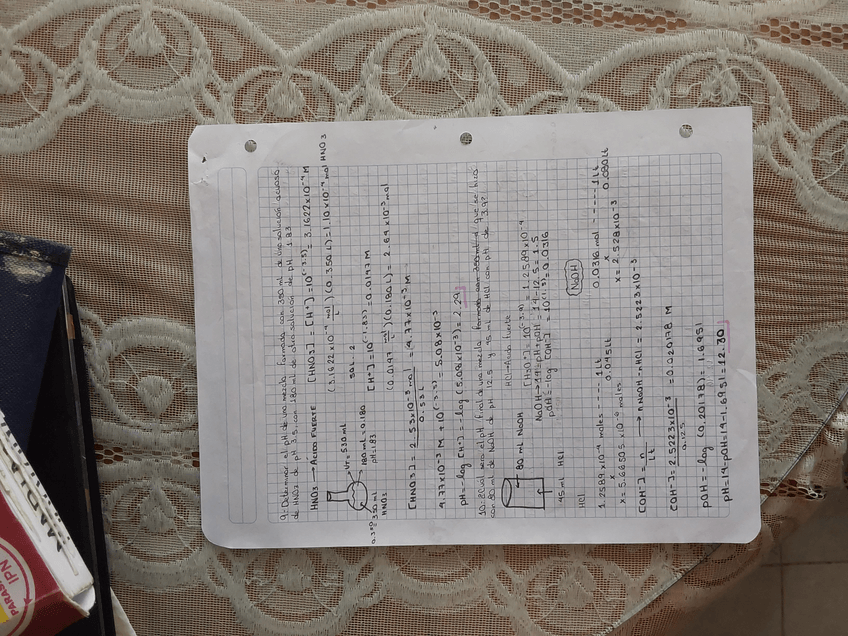 9.- Determinar el pH de una mezcla formada con 350 mL de una solución acuosa
de HNO3 de pH 3.5, con 180 mL de otra solución de pH 1.83
HNO3 → Acido FUERTE [HNO3] = [H+] = 10^(-3.5) = 3.1622x10⁻⁴ M
(3.1622 x10⁻⁴ mol/L) (0.350 L) = 1.10 x10⁻⁴ mol HNO3
VT = 530 mL
SOL. 2
180 mL = 0.180
pH = 1.83
350 mL
HNO3
[H+] = 10^(-1.83) = 0.0147 M
(0.0147 mol/L) (0.180 L) = 2.64 x10⁻³ mol
[HNO3] = 2.53x10⁻³ mol / 0.53 L = 4.77x10⁻³ M
4.77x10⁻³ M + 10^(-3.5) = 5.08x10⁻³
pH = -log [H+] = -log (5.08x10⁻³) = 2.29
10. ¿Cuál será el pH final de una mezcla que se hizo
con 80 mL de NaOH de pH 12.5 y 45 mL de HCl con pH de 3.9?
HCl → Acido fuerte
80 mL NaOH
[H3O+] = 10^(-3.9) = 1.2589x10⁻⁴
NaOH → 14 = pH + pOH = 14 - 12.5 = 1.5
pOH = -log [OH-] = 10^(-1.5) = 0.0316
45 mL HCl
HCl
NaOH
1.2589 x10⁻⁴ moles ---- 1 Lt
x 0.045 Lt
x = 5.66505 x10⁻⁶ moles
0.0316 mol ---- 1 Lt
x 0.080 Lt
x = 2.528 x10⁻³
[OH-] = n / Lt → n NaOH - n HCl = 2.5223x10⁻³
[OH-] = 2.5223x10⁻³ / 0.125 = 0.020178 M
pOH = -log (0.20178) = 1.6951
pH = 14 - pOH = 14 - 1.6951 = 12.30
IPN